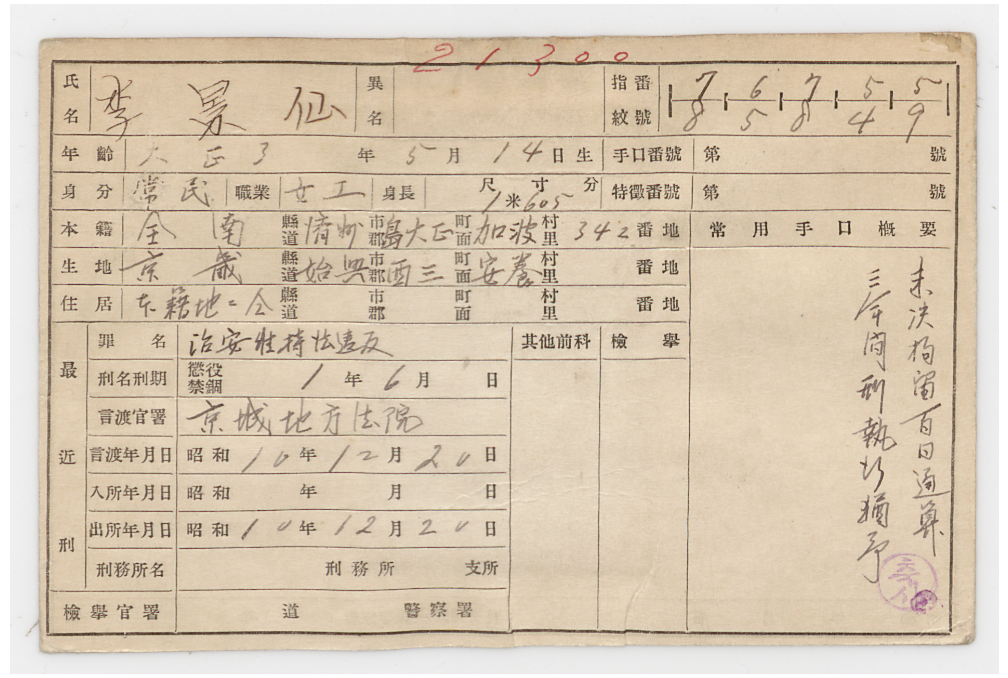 21300
氏名 李景仙 異名 指紋番號 7 6 7 5 5 / 8 5 8 4 9
年齡 大正3年5月14日生 手口番號 第 號
身分 常民 職業 女工 身長 尺寸分 1米605 特徵番號 第 號
本籍 全南 縣道 濟州 市郡 島大正 町面 加波 村里 342番地 常用手口概要
生地 京畿 縣道 始興 市郡 西二 町面 安養 村里 番地
住居 本籍地二仝 縣道 市郡 町面 村里 番地
最近刑
罪名 治安維持法違反 其他前科 檢擧
刑名刑期 懲役 禁錮 1年6月 日
言渡官署 京城地方法院
言渡年月日 昭和10年12月20日
入所年月日 昭和 年 月 日
出所年月日 昭和10年12月20日
刑務所名 刑務所 支所
檢擧官署 道 警察署
未決拘留百日通算
三年間刑執行猶予